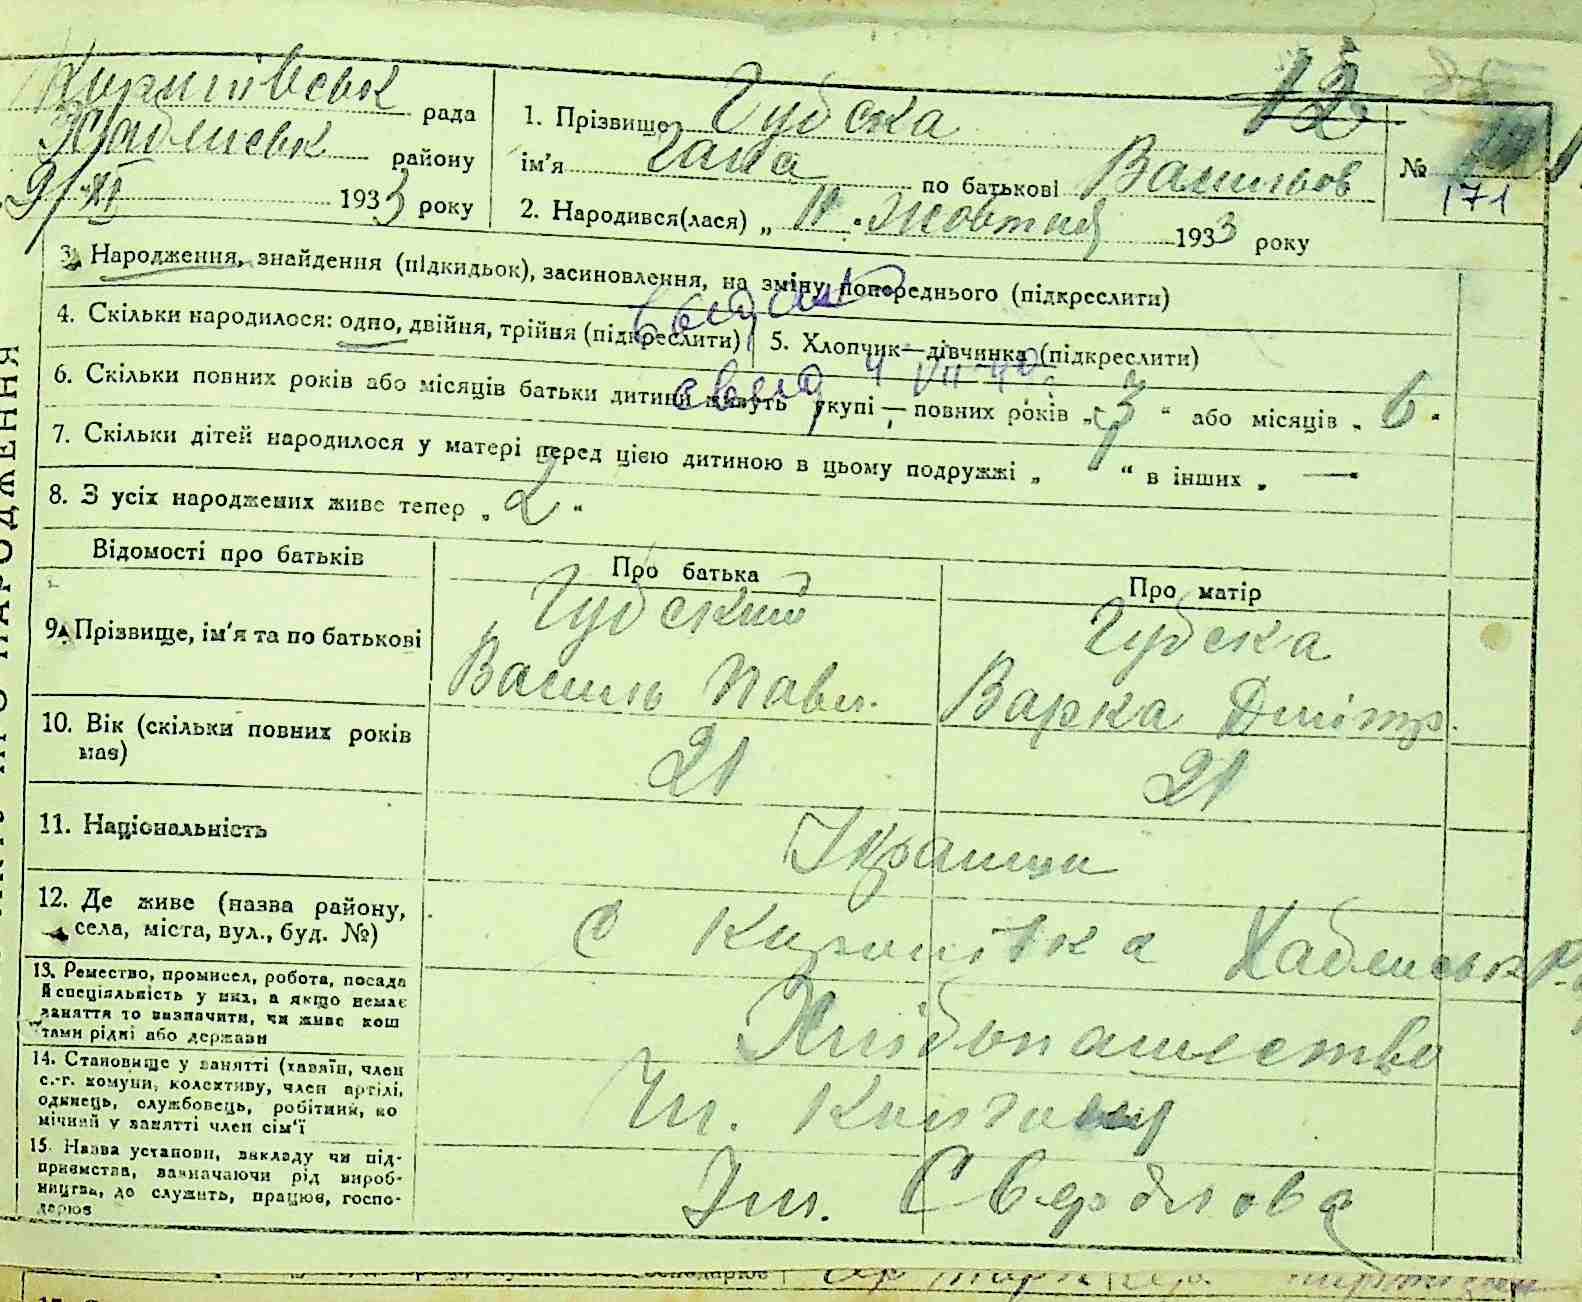 рада
Хаблиськ району
9/XI 1933 року
1. Прізвище Губска
ім'я Гапа по батькові Васильов
2. Народився(лася) „ 11 " Жовтня 1933 року
12
№
171
3. Народження, знайдення (підкидьок), засиновлення, на зміну попереднього (підкреслити)
4. Скільки народилося: одно, двійня, трійня (підкреслити) 5. Хлопчик—дівчинка (підкреслити)
6. Скільки повних років або місяців батьки дитини живуть укупі — повних років „ 3 “ або місяців „ 6 “
7. Скільки дітей народилося у матері перед цією дитиною в цьому подружжі „ “ в інших „ — “
8. З усіх народжених живе тепер „ 2 “
Відомості про батьків
Про батька
Про матір
9. Прізвище, ім'я та по батькові
Губский
Василь Павл.
Губска
Варка Дмітр.
10. Вік (скільки повних років має)
21
21
11. Національність
Українци
12. Де живе (назва району,
села, міста, вул., буд. №)
с Хаблиськ р-
13. Ремество, промисел, робота, посада
й спеціяльність у них, а якщо немає
заняття то визначити, чи живе кош
тами рідні або держави
Хлібопашество
14. Становище у занятті (хазяїн, член
с.-г. комуни, колективу, член артілі,
одинець, службовець, робітник, по
мічний у занятті член сім'ї
Чл. Колгоспу
15. Назва установи, закладу чи під-
приємства, зазначаючи рід вироб-
ництва, де служить, працює, госпо-
дарює
Ім. Свердлова